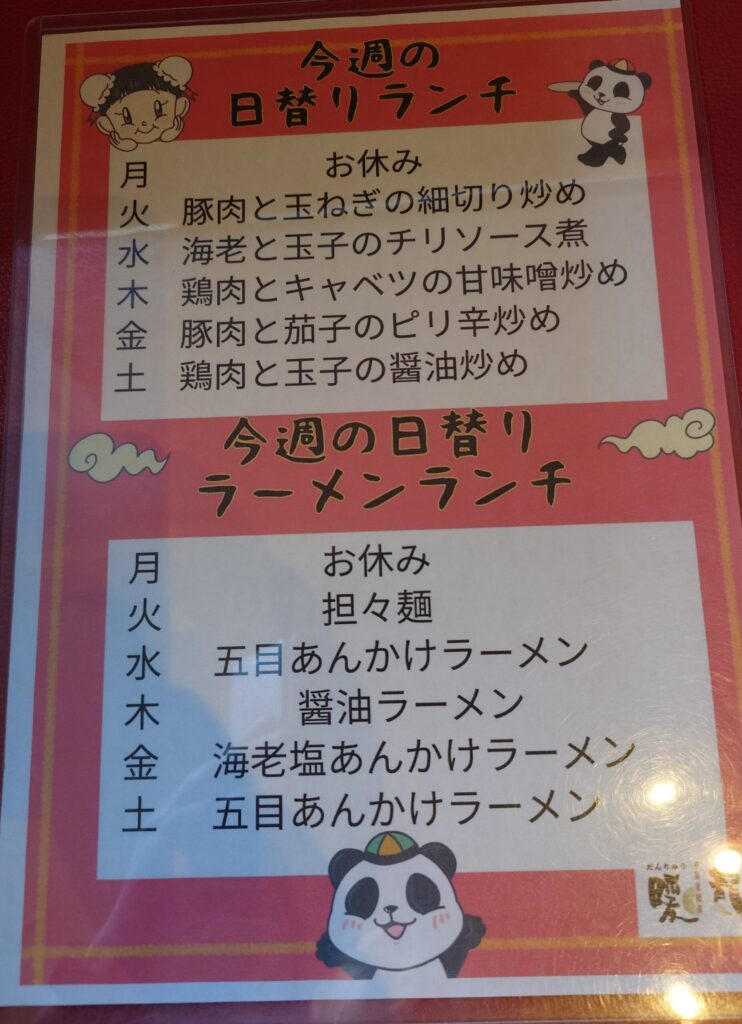 今週の
日替りランチ
月 お休み
火 豚肉と玉ねぎの細切り炒め
水 海老と玉子のチリソース煮
木 鶏肉とキャベツの甘味噌炒め
金 豚肉と茄子のピリ辛炒め
土 鶏肉と玉子の醤油炒め
今週の日替り
ラーメンランチ
月 お休み
火 担々麺
水 五目あんかけラーメン
木 醤油ラーメン
金 海老塩あんかけラーメン
土 五目あんかけラーメン
だんちゅう
暖